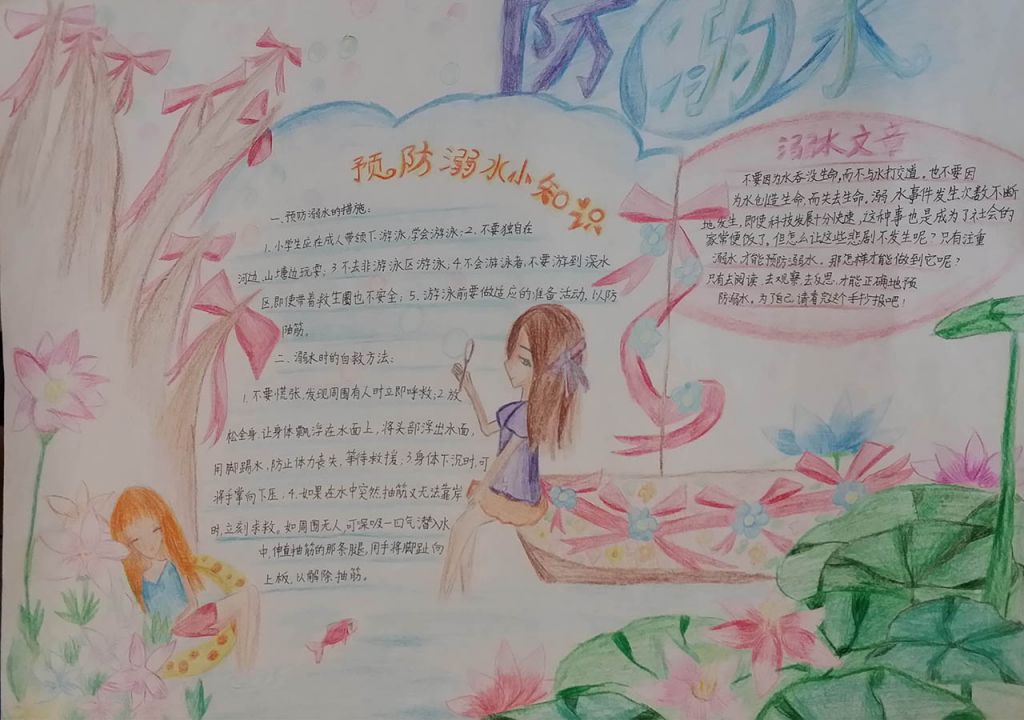 防溺水
预防溺水小知识
一.预防溺水的措施:
1.小学生应在成人带领下游泳,学会游泳;2.不要独自在
河边,山塘边玩耍;3不去非游泳区游泳;4不会游泳者,不要游到深水
区,即使带着救生圈也不安全;5.游泳前要做适应的准备活动,以防
抽筋。
二.溺水时的自救方法:
1.不要慌张,发现周围有人时立即呼救;2.放
松全身,让身体飘浮在水面上,将头部浮出水面,
用脚踢水,防止体力丧失,等待救援;3身体下沉时,可
将手掌向下压;4.如果在水中突然抽筋又无法靠岸
时,立刻求救。如周围无人,可深吸一口气潜入水
中,伸直抽筋的那条腿,用手将脚趾向
上板,以解除抽筋。
溺水文章
不要因为水吞没生命,而不与水打交道。也不要因
为水创造生命,而失去生命,溺水事件发生次数不断
地发生,即使科技发展十分快速,这种事也是成为了社会的
家常便饭了,但怎么让这些悲剧不发生呢?只有注重
溺水才能预防溺水。那怎样才能做到它呢?
只有去阅读,去观察,去反思,才能正确地预
防溺水,为了自己请看完这个手抄报吧!